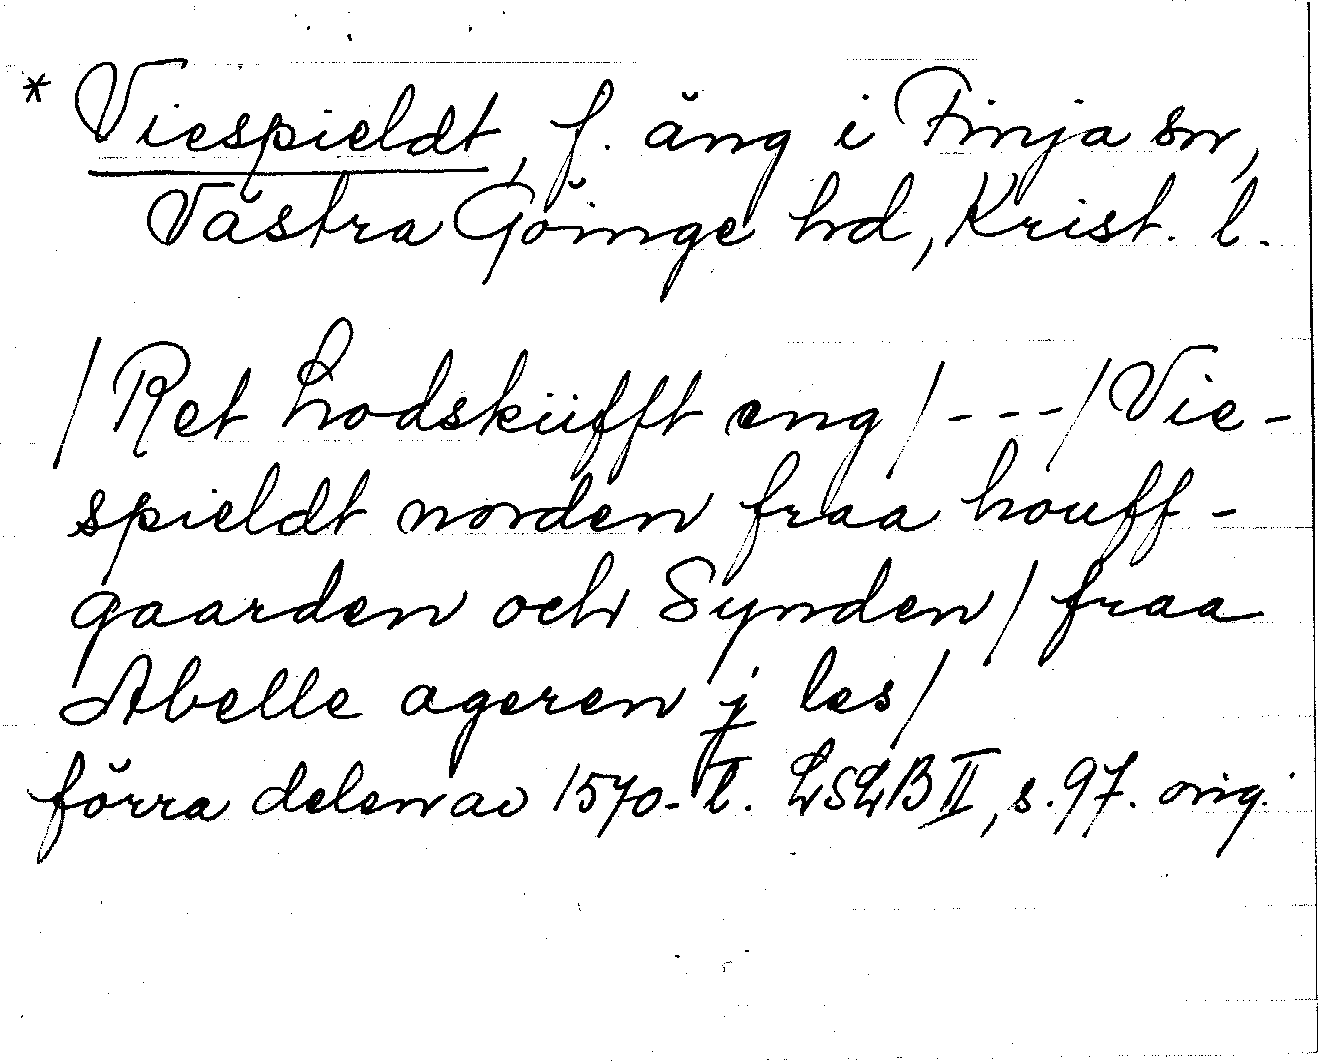 * Viespieldt, f. äng i Finja sn,
Västra Göinge hd, Krist. l.
/Ret Lodskiifft eng/---/Vie-
spieldt norden fraa houff-
gaarden och Synden/ fraa
Abelle ageren j les/
förra delen av 1570-t. LSLB II, s. 97. orig.